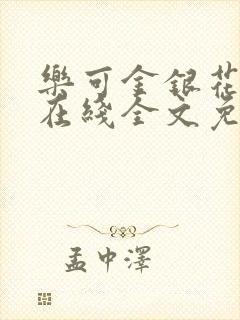 樂可金銀花
在綫全文免
孟中澤